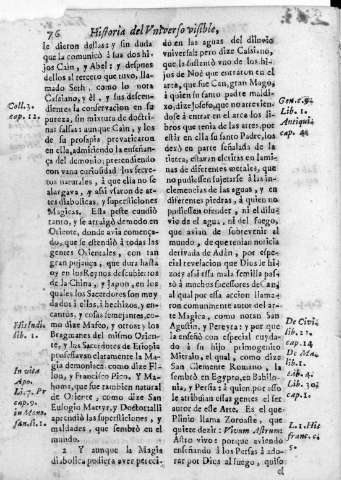 76
Historia del Vniverso visible,
le dieron dellas: y sin duda
que la comunicò à sus dos hi-
jos Cain, y Abel: y despues
dellos al tercero que tuvo, lla-
mado Seth, como lo nota
Cassiano, y èl, y sus descen-
dientes la conservaron en su
pureza, sin mixtura de doctri-
nas falsas: aunque Cain, y los
de su prosapia prevaricaron
en ella, admitiendo la enseñan-
ça del demonio, pretendiendo
con vana curiosidad los secre-
tos naturales, à que ella no se
alargava, y assi vsaron de ar-
tes diabolicas, y supersticiones
Magicas. Ella peste cundiò
tanto, y se arraigò demodo en
Oriente, donde avia comença-
do, que se estendiò à todas las
gentes Orientales, con tan
gran pujança, que dura hasta
oy en los Reynos descubiertos
de la China, y Japon, en los
quales los Sacerdotes son muy
dados à ella, à hechizos, y en-
cantos, y cosas semejantes, co-
mo dize Mafeo, y otros: y los
Bragmanes del mismo Orien-
te, y los Sacerdotes de Etiopia
professavan claramente la Ma-
gia demoniaca: como dize Fi-
lon, y Francisco Pico. Y Ma-
homa, que fue tambien natural
de Oriente, como dize San
Eulogio Martyr, y Doctor alli
aprendiò las supersticiones, y
maldades, que sembrò en el
mundo.
2 Y aunque la Magia
diabolica pusiera aver pereci-
Coll. 3.
cap. 12.
Hist. Indi.
lib. 1.
In vita
Apo.
Li. 7. Pr
cap. 9.
in Mem.
san. li. 1.
do en las aguas del diluvio
vniversal: pero dize Cassiano,
que la sustentò vno de los hi-
jos de Noè que entraron en el
arca, que fue Can, gran Mago,
à quien su santo padre maldi-
xo, dize Josefo, que no atrevien-
dose à entrar en el arca los li-
bros que tenia de las artes, por
estàr en ella su santo Padre, los
dexò en parte señalada de la
tierra, estavan escritas en lami-
nas de diferentes metales, que
no pudiessen sujetarse à las in-
clemencias de las aguas, y en
diferentes piedras, à quien no
pudiessen ofender, ni el dilu-
vio de el agua, ni del fuego,
que avian de sobrevenir el
mundo, de que tenian noticia
derivada de Adàn, por espe-
cial revelacion que Dios le hi-
zo: y assi essa mala semilla pas-
sò à muchos sucessores de Can,
al qual por essa accion llama-
ron comunmente autor del ar-
te Magica, como notan San
Agustin, y Pereyra: y por que
la enseñò con especial cuyda-
do à su hijo primogenito
Mitraìo, el qual, como dize
San Clemente Romano, la
sembrò en Egypto, en Babilo-
nia, y Persia: à quien por esso
le atribuìan estas gentes el ser
autor de esse Arte. Es el que
Plinio llama Zoroastre, que
quiere dezir: Vivum Astrum
Astro vivo: porque aviendo
enseñando à los Persas à ado-
rar por Dios al fuego, quiso
el
Gen. c. 9.
Lib. 1.
Antiqui.
cap. 4.
De Civi.
lib. 21.
cap. 14
De Ma.
lib. 1.
Lib. 4.
Lib. 30.
cap. 1.